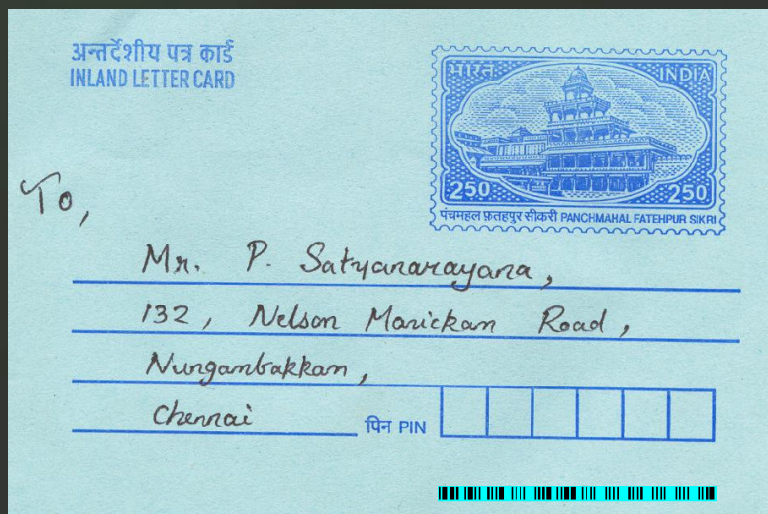 अन्तर्देशीय पत्र कार्ड
INLAND LETTER CARD
भारत INDIA
250 250
पंचमहल फ़तहपुर सीकरी PANCHMAHAL FATEHPUR SIKRI
To,
Mr. P. Satyanarayana,
132, Nelson Manickam Road,
Nungambakkam,
Chennai
पिन PIN